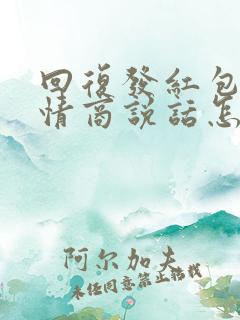 回復發紅包
情商說話怎
阿尔加夫
未经同意禁止转载